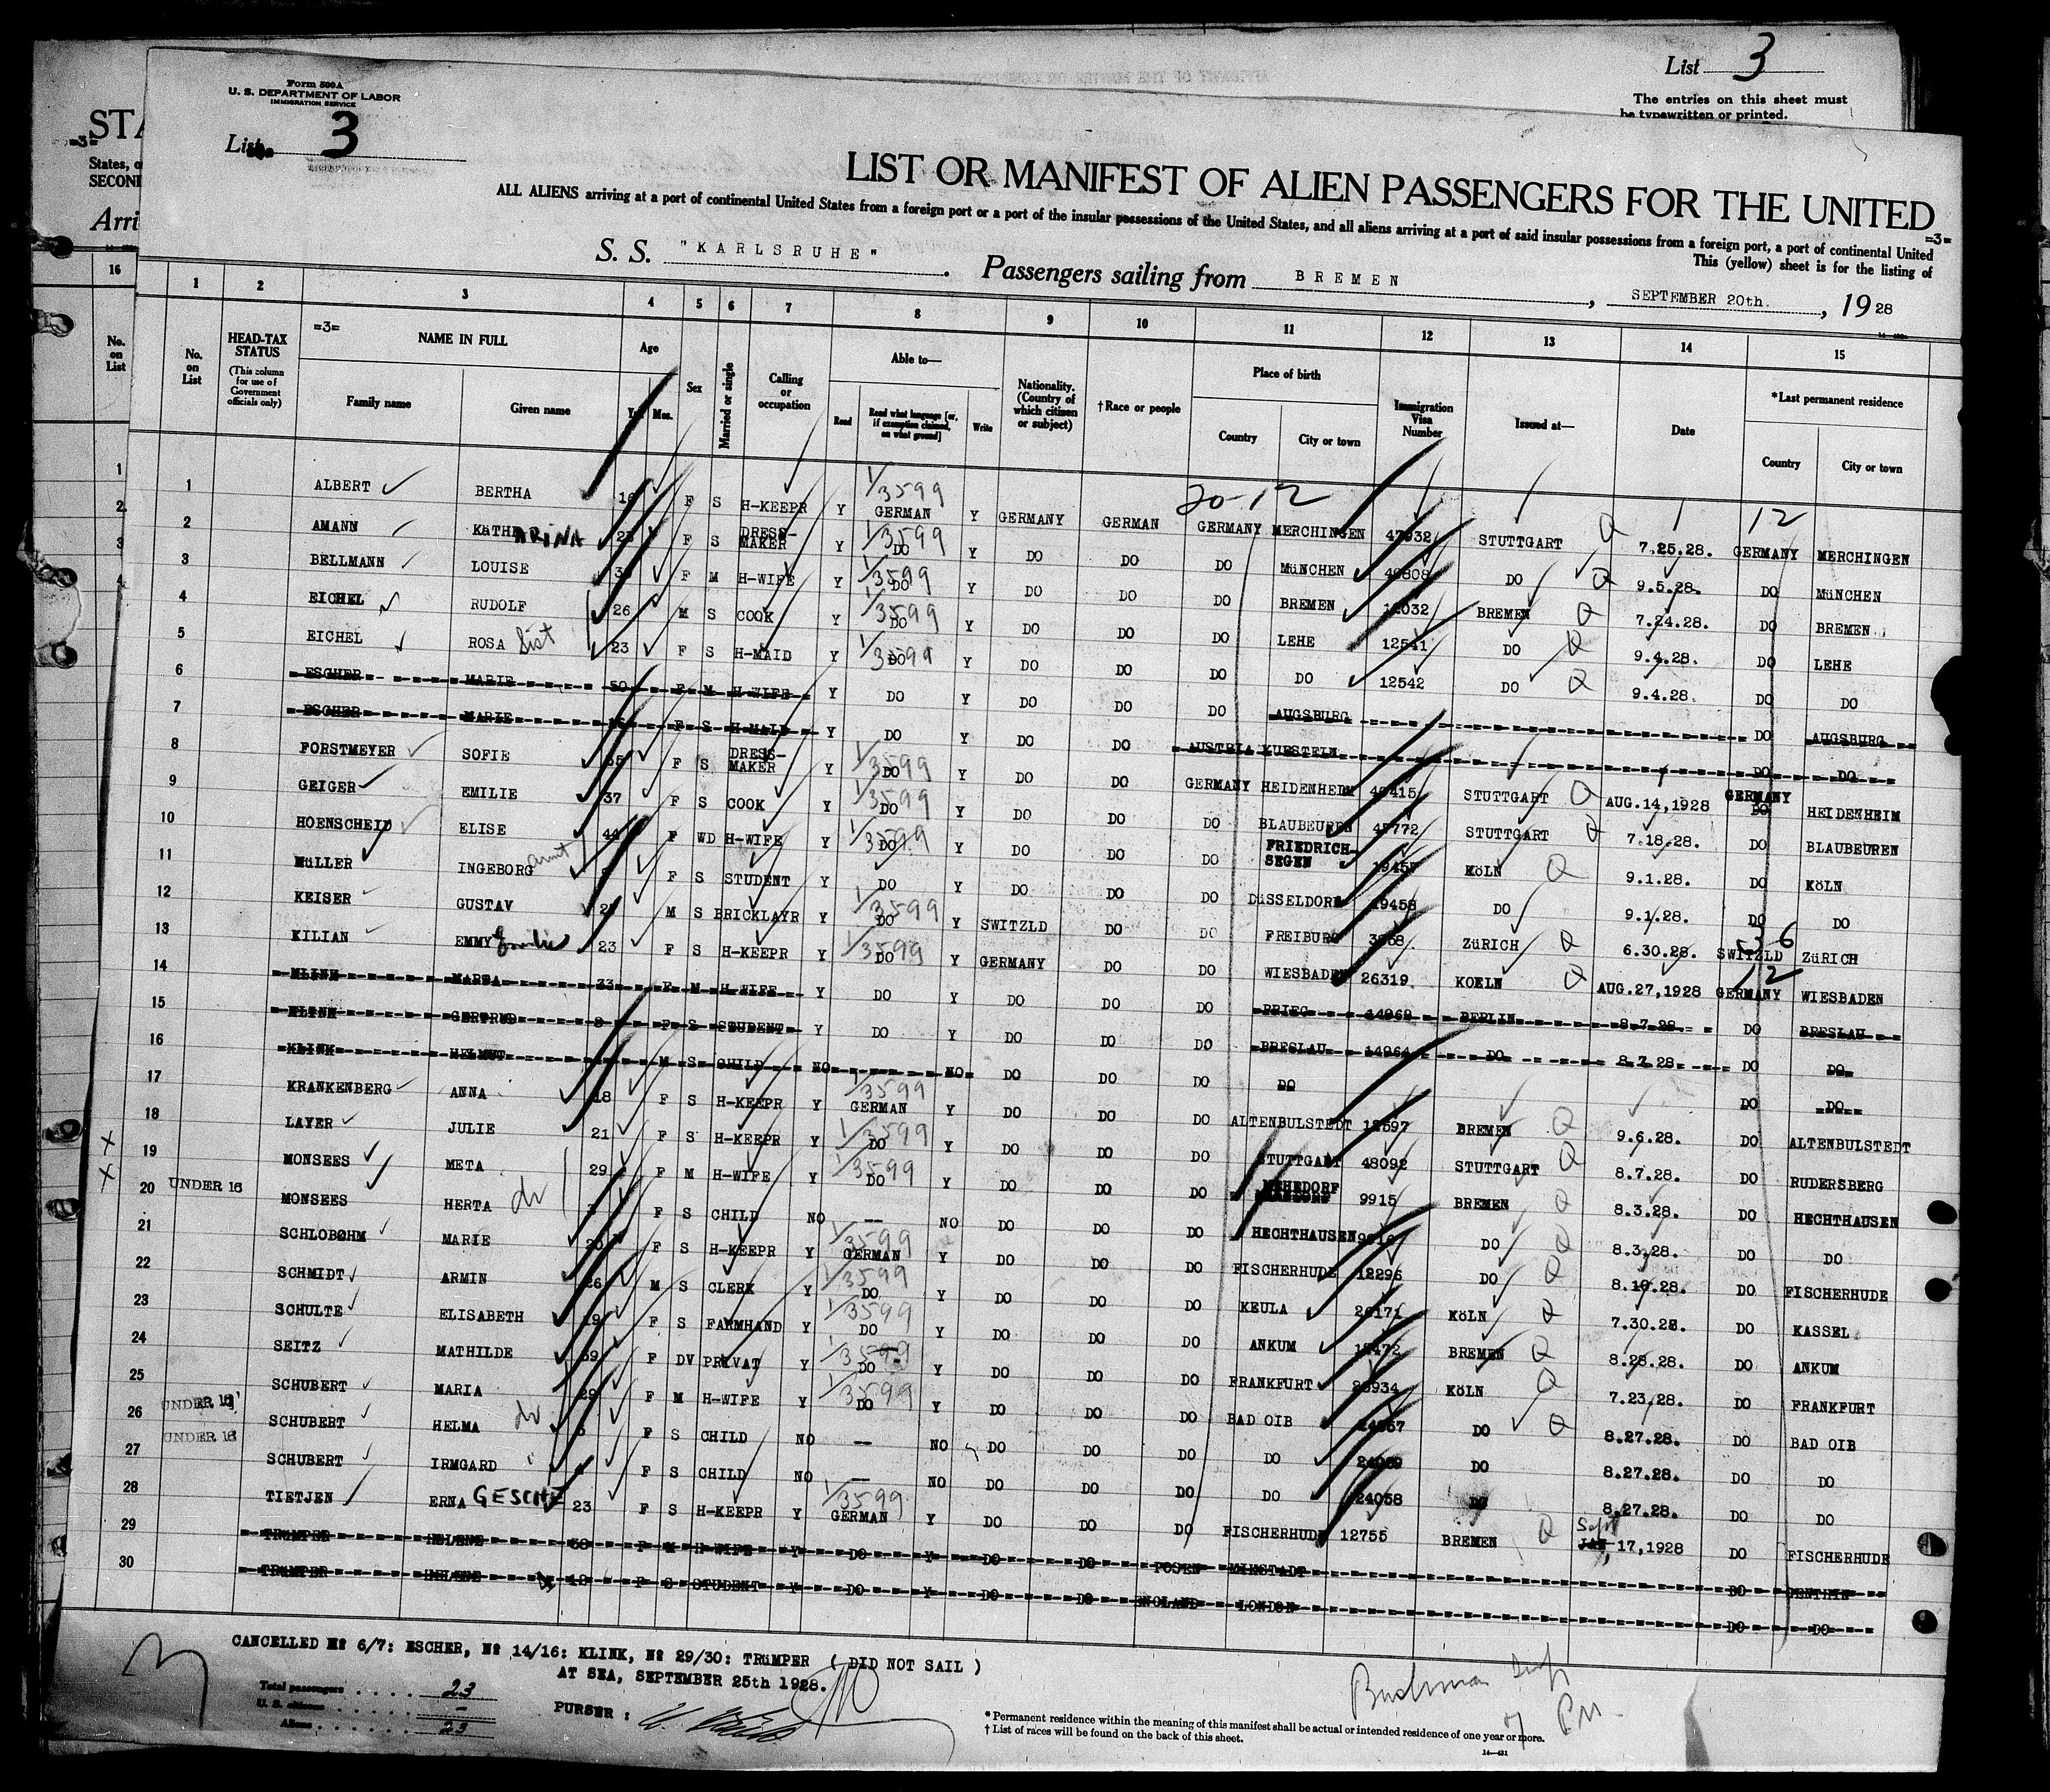 List 3
The entries on this sheet must
be typewritten or printed.
Form 500A
U. S. DEPARTMENT OF LABOR
IMMIGRATION SERVICE
List 3
STA
=3=
States, o
SECOND
Arri
LIST OR MANIFEST OF ALIEN PASSENGERS FOR THE UNITED
ALL ALIENS arriving at a port of continental United States from a foreign port or a port of the insular possessions of the United States, and all aliens arriving at a port of said insular possessions from a foreign port, a port of continental United
=3=
This (yellow) sheet is for the listing of
S. S. "KARLSRUHE". Passengers sailing from BREMEN, SEPTEMBER 20th., 1928
16 1 2 3 4 5 6 7 8 9 10 11 12 13 14 15
No. on List
No. on List
HEAD-TAX STATUS (This column for use of Government officials only)
=3= NAME IN FULL Family name Given name
Age Yrs. Mos.
Sex
Married or single
Calling or occupation
Able to— Read Read what language [or, if exemption claimed, on what ground] Write
Nationality. (Country of which citizen or subject)
†Race or people
Place of birth Country City or town
Immigration Visa Number
Issued at—
Date
*Last permanent residence Country City or town
20-12 12
1 ALBERT BERTHA 16 F S H-KEEPR Y 1/3599 GERMAN Y GERMANY GERMAN GERMANY MERCHINGEN 47932 STUTTGART 7.25.28. GERMANY MERCHINGEN
2 AMANN KäTHE ARINA F S DRESS-MAKER Y 1/3599 DO Y DO DO DO MüNCHEN 40808 DO 9.5.28. DO MüNCHEN
3 BELLMANN LOUISE F M H-WIFE Y 1/3599 DO Y DO DO DO BREMEN 12032 BREMEN 7.24.28. DO BREMEN
4 EICHEL RUDOLF 26 M S COOK Y 1/3599 DO Y DO DO DO LEHE 12541 DO 9.4.28. DO LEHE
5 EICHEL ROSA Sist 23 F S H-MAID Y 1/3599 DO Y DO DO DO DO 12542 DO 9.4.28. DO DO
6 ESCHER MARIE 50 F M H-WIFE Y DO Y DO DO DO AUGSBURG DO AUGSBURG
7 ESCHER MARIE F S H-MAID Y DO Y DO DO AUSTRIA KUFSTEIN DO DO
8 FORSTMEYER SOFIE 35 F S DRESS-MAKER Y 1/3599 DO Y DO DO GERMANY HEIDENHEIM STUTTGART AUG.14,1928 GERMANY HEIDENHEIM
9 GEIGER EMILIE 37 F S COOK Y 1/3599 DO Y DO DO DO BLAUBEUREN 47772 STUTTGART 7.18.28. DO BLAUBEUREN
10 HOENSCHEID ELISE 44 F WD H-WIFE Y 1/3599 DO Y DO DO DO FRIEDRICH-SEGEN 19457 KöLN 9.1.28. DO KöLN
11 MüLLER INGEBORG aunt F S STUDENT Y DO Y DO DO DO DüSSELDORF 19458 DO 9.1.28. DO DO
12 KEISER GUSTAV M S BRICKLAYR Y 1/3599 DO Y SWITZLD DO DO FREIBURG ZüRICH 6.30.28. SWITZLD 36 ZüRICH
13 KILIAN EMMY Emilie 23 F S H-KEEPR Y 1/3599 DO Y GERMANY DO DO WIESBADEN 26319 KOELN AUG.27,1928 GERMANY 12 WIESBADEN
14 KLINK MARTA 33 F M H-WIFE Y DO Y DO DO DO BRIEG 14963 BERLIN 8.7.28. DO BRESLAU
15 KLINK GERTRUD F S STUDENT Y DO Y DO DO DO BRESLAU 14964 DO 8.7.28. DO DO
16 KLINK HELMUT M S CHILD NO NO DO DO DO DO DO DO
17 KRANKENBERG ANNA 18 F S H-KEEPR Y 1/3599 GERMAN Y DO DO DO ALTENBULSTEDT 12597 BREMEN 9.6.28. DO ALTENBULSTEDT
18 LAYER JULIE 21 F S H-KEEPR Y 1/3599 DO Y DO DO DO STUTTGART 48092 STUTTGART 8.7.28. DO RUDERSBERG
19 MONSEES META 29 F M H-WIFE Y 1/3599 DO Y DO DO DO 9915 BREMEN 8.3.28. DO HECHTHAUSEN
20 UNDER 16 MONSEES HERTA F S CHILD NO — NO DO DO DO HECHTHAUSEN DO 8.3.28. DO DO
21 SCHLOBOHM MARIE F S H-KEEPR Y 1/3599 GERMAN Y DO DO DO FISCHERHUDE 12296 DO 8.10.28. DO FISCHERHUDE
22 SCHMIDT ARMIN 26 M S CLERK Y 1/3599 DO Y DO DO DO KEULA 26171 KöLN 7.30.28. DO KASSEL
23 SCHULTE ELISABETH 19 F S FARMHAND Y 1/3599 DO Y DO DO DO ANKUM BREMEN 8.28.28. DO ANKUM
24 SEITZ MATHILDE 39 F DV PRIVAT Y 1/3599 DO Y DO DO DO FRANKFURT KöLN 7.23.28. DO FRANKFURT
25 SCHUBERT MARIA 29 F M H-WIFE Y 1/3599 DO Y DO DO DO BAD OIB DO 8.27.28. DO BAD OIB
26 UNDER 16 SCHUBERT HELMA F S CHILD NO — NO DO DO DO DO DO 8.27.28. DO DO
27 UNDER 16 SCHUBERT IRMGARD F S CHILD NO — NO DO DO DO DO 24058 DO 8.27.28. DO DO
28 TIETJEN ERNA GESCHE 23 F S H-KEEPR Y 1/3599 GERMAN Y DO DO DO FISCHERHUDE 12755 BREMEN Sept JAN 17,1928 DO FISCHERHUDE
29 TRüMPER HELENE 38 F M H-WIFE Y DO Y DO DO POSEN DO GENTHIN
30 TRüMPER HELENE F S STUDENT Y DO Y DO DO ENGLAND LONDON DO DO
CANCELLED № 6/7: ESCHER, № 14/16: KLINK, № 29/30: TRüMPER ( DID NOT SAIL )
AT SEA, SEPTEMBER 25th 1928.
Total passengers . . . . 23
U. S. citizens . . . . . –
Aliens . . . . . . 23
PURSER :
* Permanent residence within the meaning of this manifest shall be actual or intended residence of one year or more.
† List of races will be found on the back of this sheet.